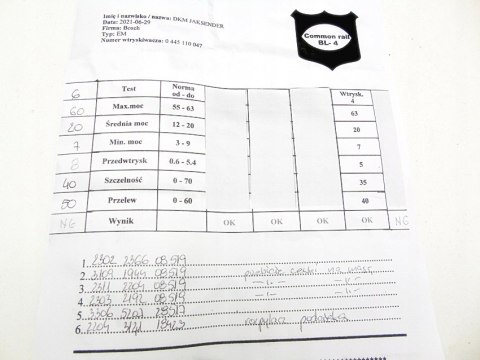 Imię i nazwisko / nazwa: DKM JAKSENDER
Data: 2021-06-29
Firma: Bosch
Typ: EM
Numer wtryskiwacza: 0 445 110 047
Common rail
BL- 4
6 Test Norma od - do Wtrysk. 4
60 Max.moc 55 - 63 63
20 Średnia moc 12 - 20 20
7 Min. moc 3 - 9 7
8 Przedwtrysk 0.6 - 5.4 5
40 Szczelność 0 - 70 35
50 Przelew 0 - 60 40
NG Wynik OK OK OK OK NG
1. 2302 2366 08519
2. 3109 1944 08519
3. 2311 2204 08519
4. 2303 2192 08519
5. 3306 5202
6. 2204 3121